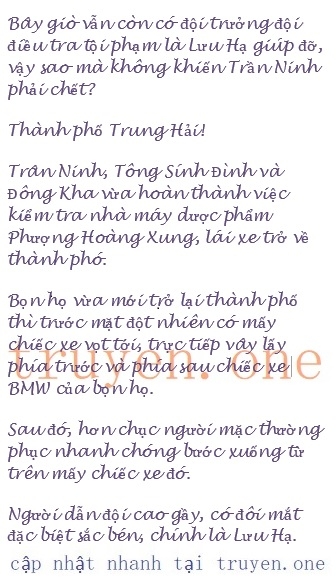 Bây giờ vẫn còn có đội trưởng đội
điều tra tội phạm là Lưu Hạ giúp đỡ,
vậy sao mà không khiến Trần Ninh
phải chết?
Thành phố Trung Hải!
Trần Ninh, Tống Sính Đình và
Đồng Kha vừa hoàn thành việc
kiểm tra nhà máy dược phẩm
Phượng Hoàng Xung, lái xe trở về
thành phố.
Bọn họ vừa mới trở lại thành phố
thì trước mặt đột nhiên có mấy
chiếc xe vọt tới, trực tiếp vây lấy
phía trước và phía sau chiếc xe
BMW của bọn họ.
truyen.one
Sau đó, hơn chục người mặc thường
phục nhanh chóng bước xuống từ
trên mấy chiếc xe đó.
Người dẫn đội cao gầy, có đôi mắt
đặc biệt sắc bén, chính là Lưu Hạ.
cập nhật nhanh tại truyen.one